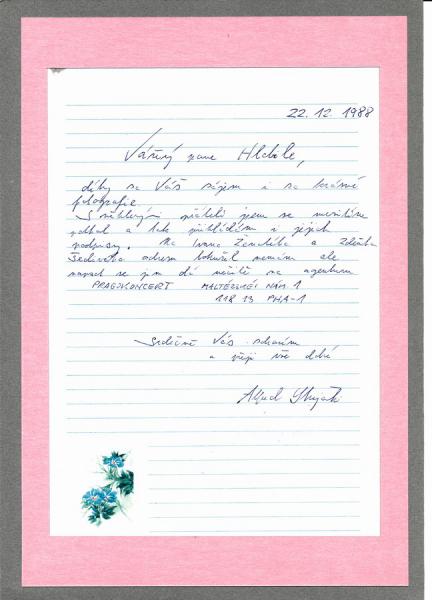 22. 12. 1988
Vážený pane Hlaběle,
díky za Váš zájem i za krásné
fotografie.
S některými přáteli jsem se mezitím
a tak přikládám i jejich
podpisy. Na Ivana Ženatého a Zdeňka
adresu bohužel nemám ale
se jim dá na agenturu
PRAGOKONCERT MALTÉZSKÉ NÁM 1
118 13 PHA-1
Srdečně Vás zdravím
a přeji vše dobré
Alfred Strejček